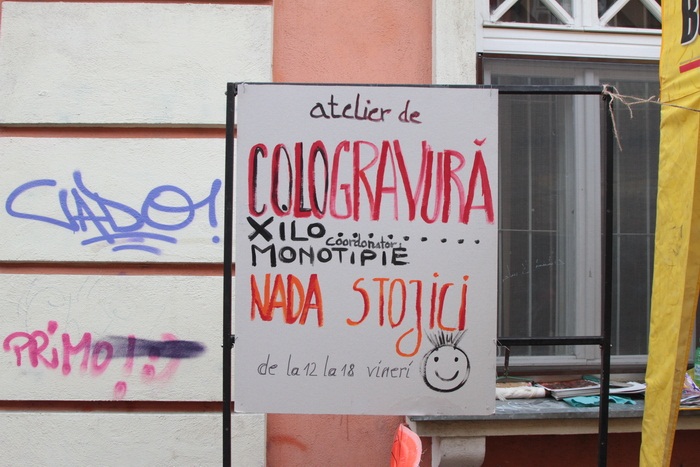 atelier de
COLOGRAVURĂ
XILO..........
coordonator
MONOTIPIE
NADA STOJICI
de la 12 la 18 vineri
PRIMO!